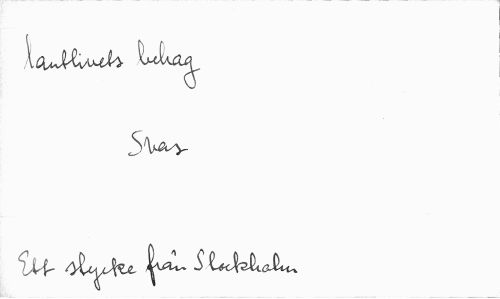 lantlivets behag
Svas
Ett stycke från Stockholm